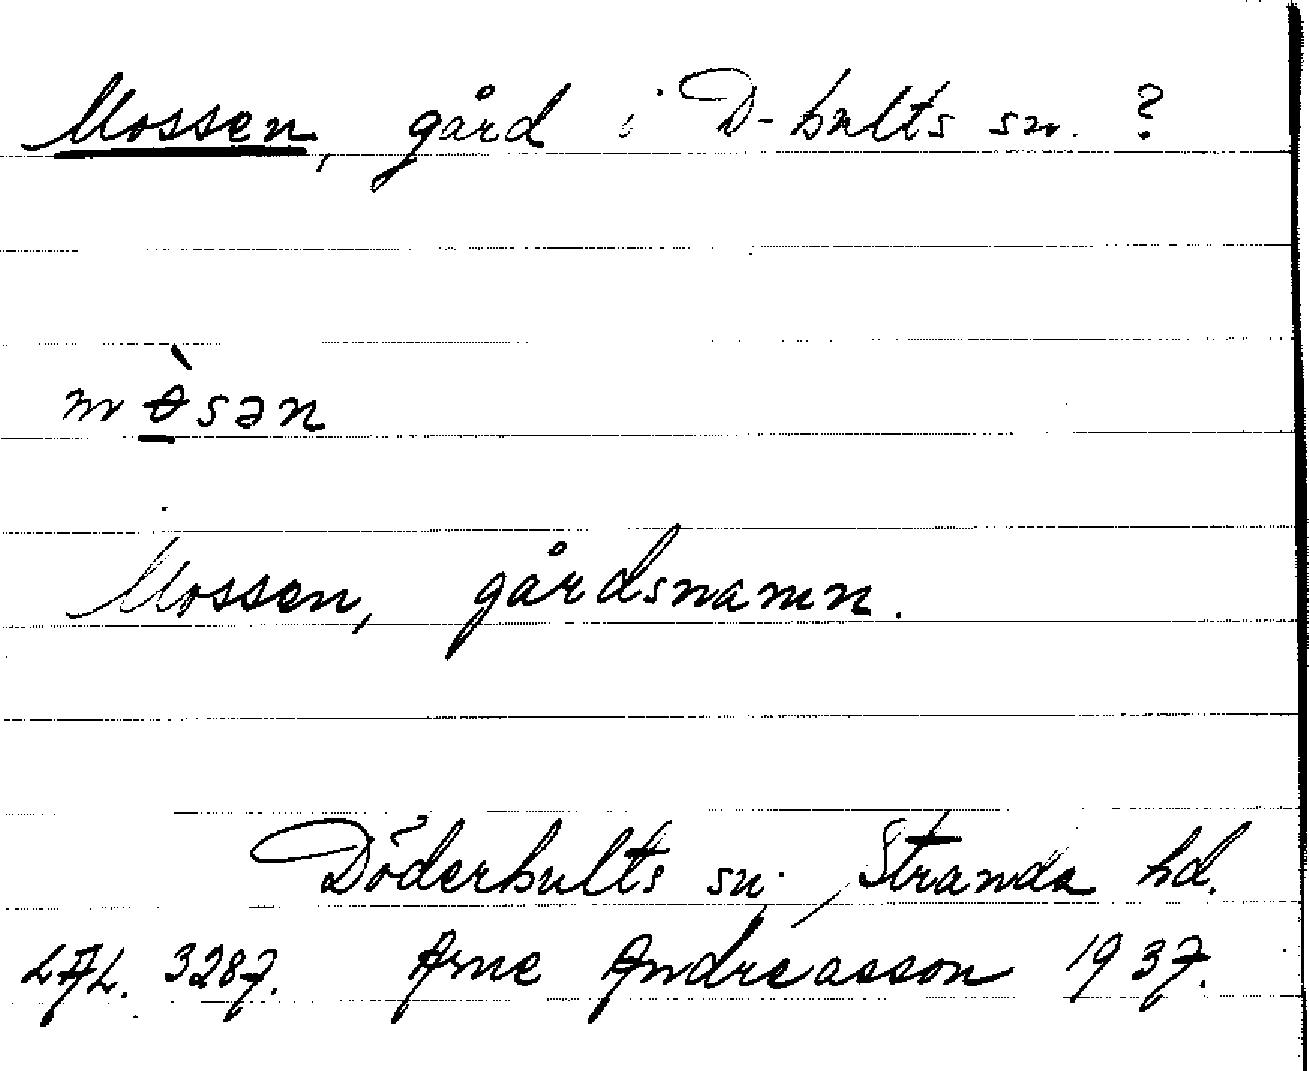 Mossen, gård i D-hults sn. ?
mɵ̀sən
Mossen, gårdsnamn.
Döderhults sn., Stranda hd.
LAL. 3287. Arne Andreasson 1937.